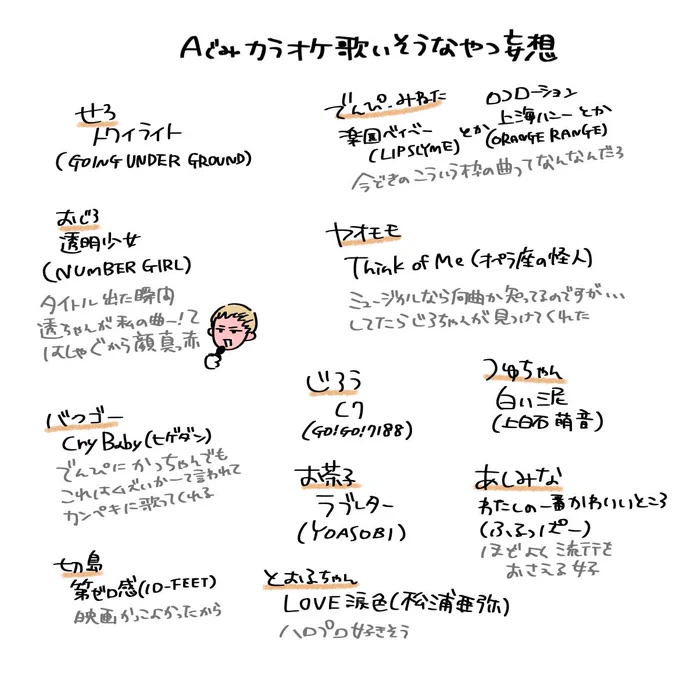 Aぐみカラオケ歌いそうなやつ妄想
せろ
トワイライト
(GOING UNDER GROUND)
でんぴ・みねた
楽園ベイベー
(LIPSLYME)
とか
ロコローション
上海ハニーとか
(ORANGE RANGE)
今どきのこういう枠の曲ってなんなんだろ
おじろ
透明少女
(NUMBER GIRL)
タイトル出た瞬間
透ちゃんが私の曲ー!て
はしゃぐから顔真っ赤
ヤオモモ
Think of Me (オペラ座の怪人)
ミュージカルなら何曲か知ってるのですが…
してたらじろちゃんが見つけてくれた
ばつゴー
Cry Baby (ヒゲダン)
でんぴにかっちゃんでも
これはムズいかーて言われて
カンペキに歌ってくれる
じろう
C7
(GO!GO!7188)
つゆちゃん
白い泥
(上白石萌音)
お茶子
ラブレター
(YOASOBI)
あしみな
わたしの一番かわいいところ
(ふるっぱー)
ほどよく流行を
おさえる女子
切島
第ゼロ感(10-FEET)
映画かっこよかったから
とおるちゃん
LOVE涙色(松浦亜弥)
ハロプロ好きそう